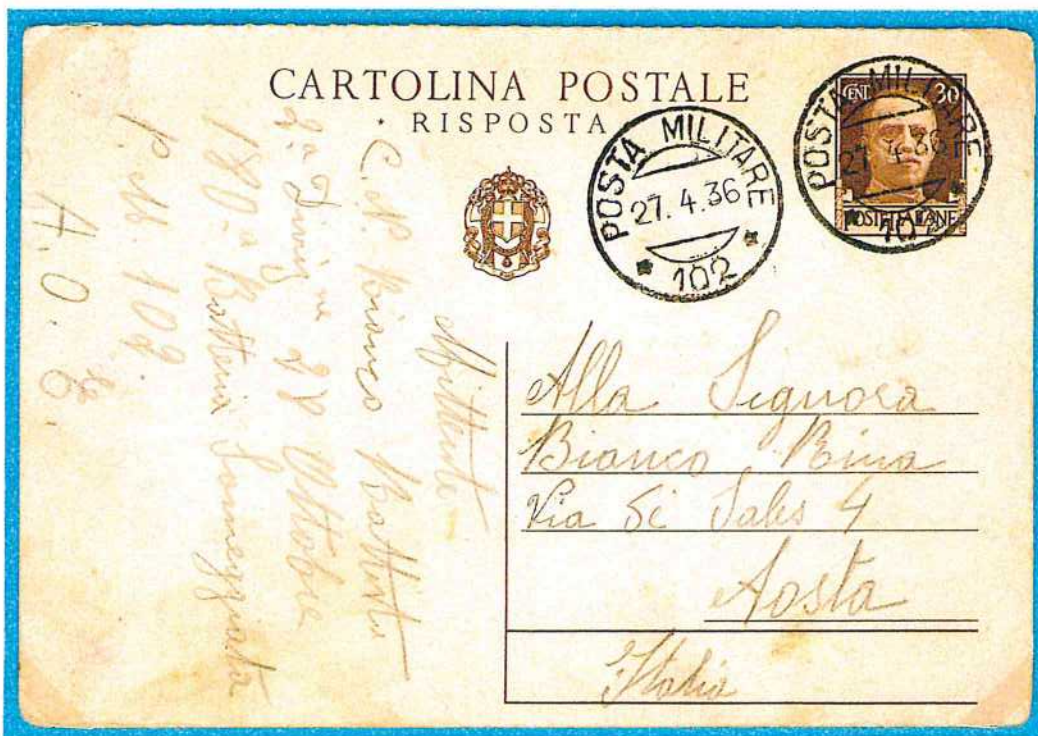 CARTOLINA POSTALE
• RISPOSTA
CENT. 30
POSTE ITALIANE
POSTA MILITARE
27.4.36
102
POSTA MILITARE
27.4.36
102
Mittente
C. N. Bianco Battista
2.a Divis ne 28 Ottobre
180 a Batteria Someggiata
P. M. 102.
A. O.
Alla Signora
Bianco Rina
Via Di Sales 4
Aosta
Italia